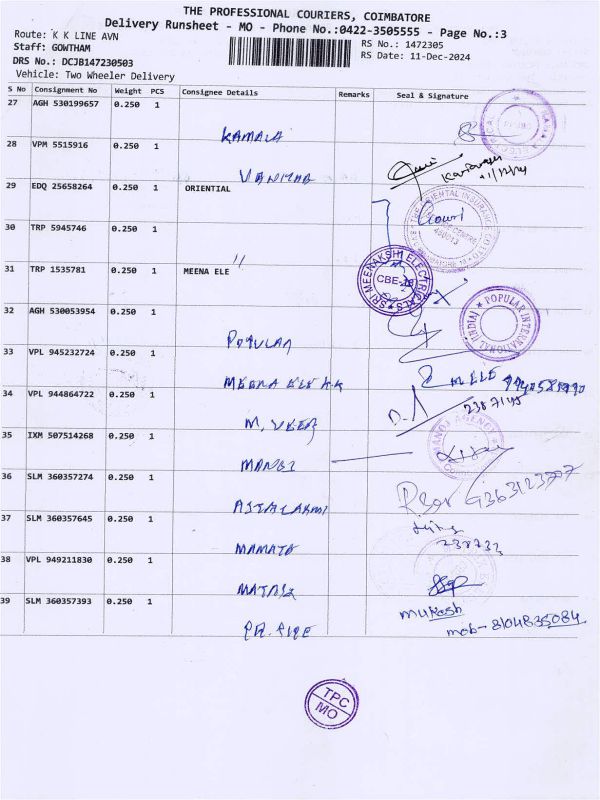 THE PROFESSIONAL COURIERS, COIMBATORE
Delivery Runsheet - MO - Phone No.:0422-3505555 - Page No.:3
Route: K K LINE AVN
RS No.: 1472305
Staff: GOWTHAM
RS Date: 11-Dec-2024
DRS No.: DCJB147230503
Vehicle: Two Wheeler Delivery
S No Consignment No Weight PCS Consignee Details Remarks Seal & Signature
27 AGH 530199657 0.250 1
KAMALA
28 VPM 5515916 0.250 1
VANITHA
29 EDQ 25658264 0.250 1 ORIENTIAL
Gowri
30 TRP 5945746 0.250 1
"
31 TRP 1535781 0.250 1 MEENA ELE
SRI MEENAKSHI ELECTRICALS
CBE-18
32 AGH 530053954 0.250 1
POPULAR
POPULAR INTERNATIONAL (INDIA)
33 VPL 945232724 0.250 1
MEENA ELE
M ELE
34 VPL 944864722 0.250 1
2387145
35 IXM 507514268 0.250 1
MANOJ AGENCY
36 SLM 360357274 0.250 1
9363123707
37 SLM 360357645 0.250 1
238733
38 VPL 949211830 0.250 1
MATRIX
39 SLM 360357393 0.250 1
Mukesh
mob- 8104835084
TPC
MO